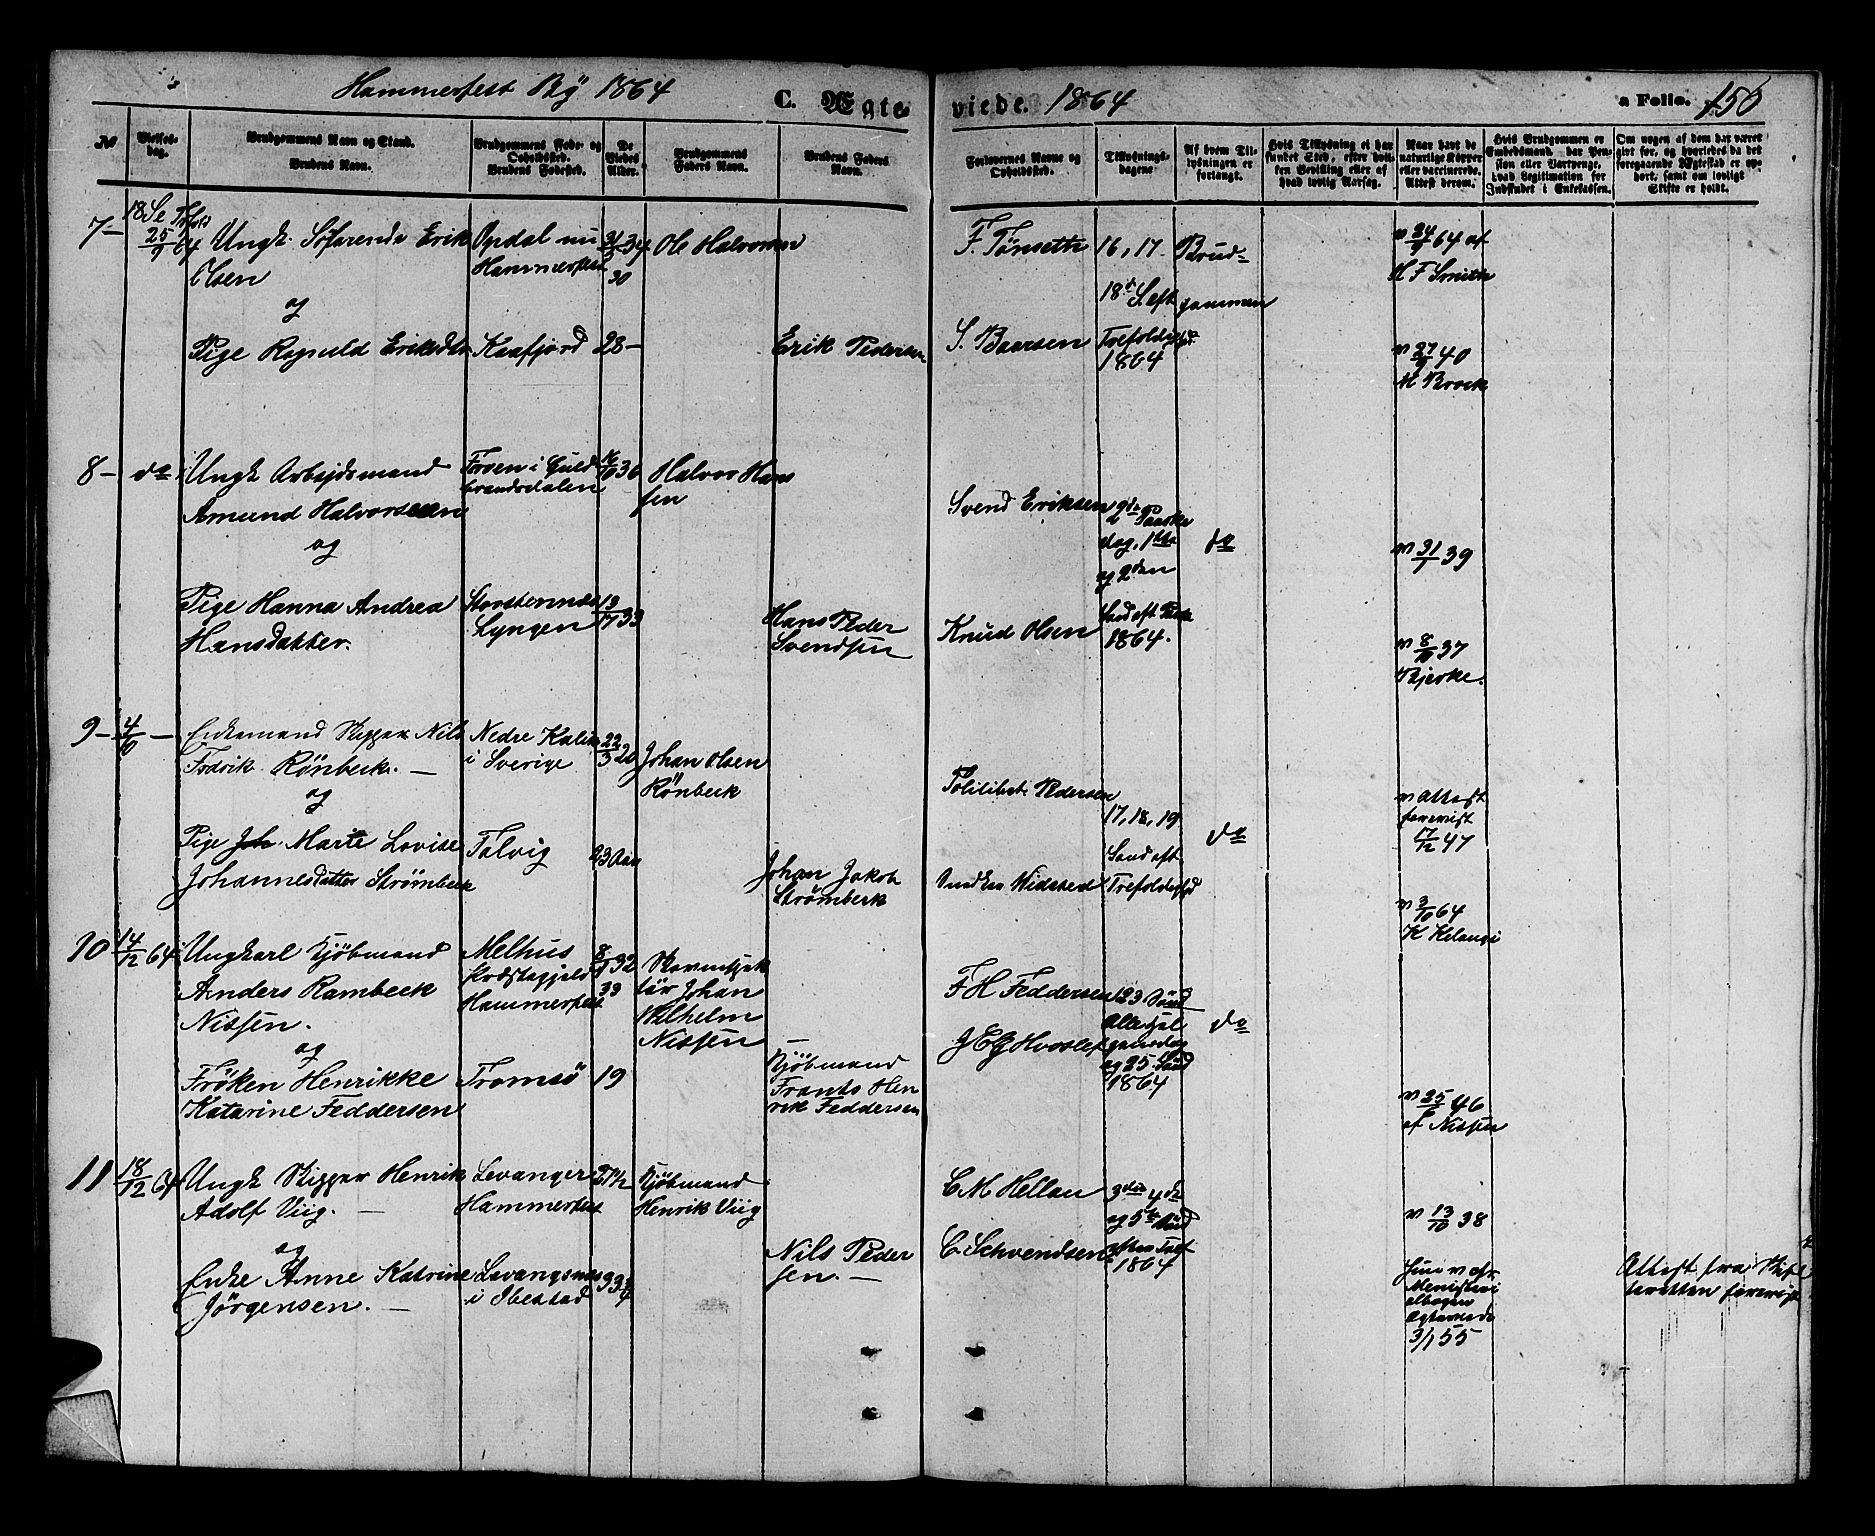 Hammerfest By 1864 C. Ægte-
viede. 1864 a Folio. 150
No
Vielses-
dag.
Brudgommens Navn og Stand.
Brudens Navn.
Brudgommens Føde- og
Opholdssted.
Brudens Fødested.
De
Viedes
Alder.
Brudgommens
Faders Navn.
Brudens Faders
Navn.
Forlovernes Navne og
Opholdssted.
Tillysnings-
dagene
Af hvem Til-
lysningen er
forlangt.
Hvis Tillysning ei har
fundet Sted, efter hvil-
ken Bevilling eller af
hvad lovlig Aarsag.
Naar havt de
naturlige Kopper
eller vaccinerede.
Attest derom.
Hvis Brudgommen er
Embedsmand, har Pen-
sion eller Vartpenge,
hvad Legitimation for
Indskudet i Enkekassen.
Om nogen af dem har været
gift før, og hvorledes da det
foregaaende Ægteskab er op-
hørt, samt om lovligt
Skifte er holdt.
7 -
18 Se Trfold
25/9 64
Ungk. Søfarende Erik
Olsen
og
Pige Ragnild Eriksdtr
Opdal nu
Hammerfest
Kaafjord
34
30
28 -
Ole Halvorsen
Erik Pedersen
F. Tønseth
S. Baarsen
16, 17
18de S. eft
Trefoldighd
1864
Brud-
gommen
v 24/9 64 af
H F Smith
v 27/9 40
M Brock
8 - do
Ungk Arbejdsmand
Amund Halvorsen
og
Pige Hanna Andrea
Hansdatter.
Froen i Guld
brandsdalen
Storstennes
Lyngen
16/10 36
13/17 33
Halvor Han
sen
Hans Peder
Svendsen
Svend Eriksen
Knud Olsen
2den Paaske
dag, 1ste
og 2den
Sønd eft Paaske
1864.
do
v 31/7 39
v 8/10 37
Bjerke.
9 - 4/10 -
Enkemand Skipper Nils
Fredrik Rönbeck. -
og
Pige Joh. Marie Lovise
Johannesdatter Strømbeck
Nedre Kalix
i Sverige
Talvig
22/3 20
23 Aar
Johan Olsen
Rönbeck
Johan Jakob
Strømbeck
Politibet. Pedersen
Snedker Widsted
17, 18, 19
Sønd eft
Trefoldighd
do
v Attest
foreviist
17/12 47
v 3/10 64
K Kelangi
10 14/12 64
Ungkarl Kjöbmand
Anders Rambeck
Nissen.
og
Fröken Henrikke
Katarine Feddersen
Melhus
Præstegjeld
Hammerfest
Tromsö
8/1 32
33
19
Johan
Wilhelm
Nissen
Kjöbmand
Frants Hen
rik Feddersen
F H Feddersen
J C G Hvoslef
23 Sönd
Allehel
gensdag
og 25 Sönd
1864
do
v 25/5 46
af Nissen
11 18/12 64
Ungk Skipper Henrik
Adolf Viig. -
og
Enke Anne Katrine
Jörgensen. -
Levanger
Hammerfest
Levangsnes
i Ibestad
27 1/2
33 3/4
Kjöbmand
Henrik Viig
Nils Peder
sen. -
C. M. Hellan
C. Schvendsen
3die 4de
og 5te Sönd
1864
v 13/10 38
Menisteri
albogen
3/1 55
Attest fra Skif
teretten foreviist